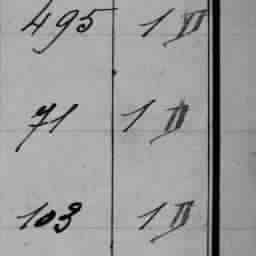 495 1 VI
71 1 II
103 1 II